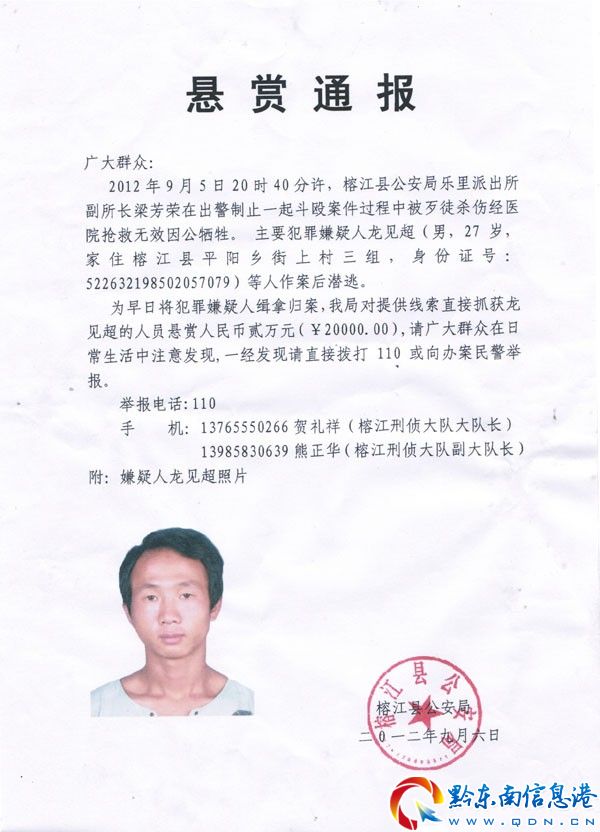 悬赏通报
广大群众：
2012年9月5日20时40分许，榕江县公安局乐里派出所
副所长梁芳荣在出警制止一起斗殴案件过程中被歹徒杀伤经医
院抢救无效因公牺牲。主要犯罪嫌疑人龙见超（男，27岁，
家住榕江县平阳乡街上村三组，身份证号：
522632198502057079）等人作案后潜逃。
为早日将犯罪嫌疑人缉拿归案，我局对提供线索直接抓获龙
见超的人员悬赏人民币贰万元（￥20000.00），请广大群众在日
常生活中注意发现，一经发现请直接拨打 110 或向办案民警举
报。
举报电话：110
手 机：13765550266 贺礼祥（榕江刑侦大队大队长）
13985830639 熊正华（榕江刑侦大队副大队长）
附：嫌疑人龙见超照片
榕江县公安局
榕江县公安局
二0一二年九月六日
黔东南信息港
WWW.QDN.CN